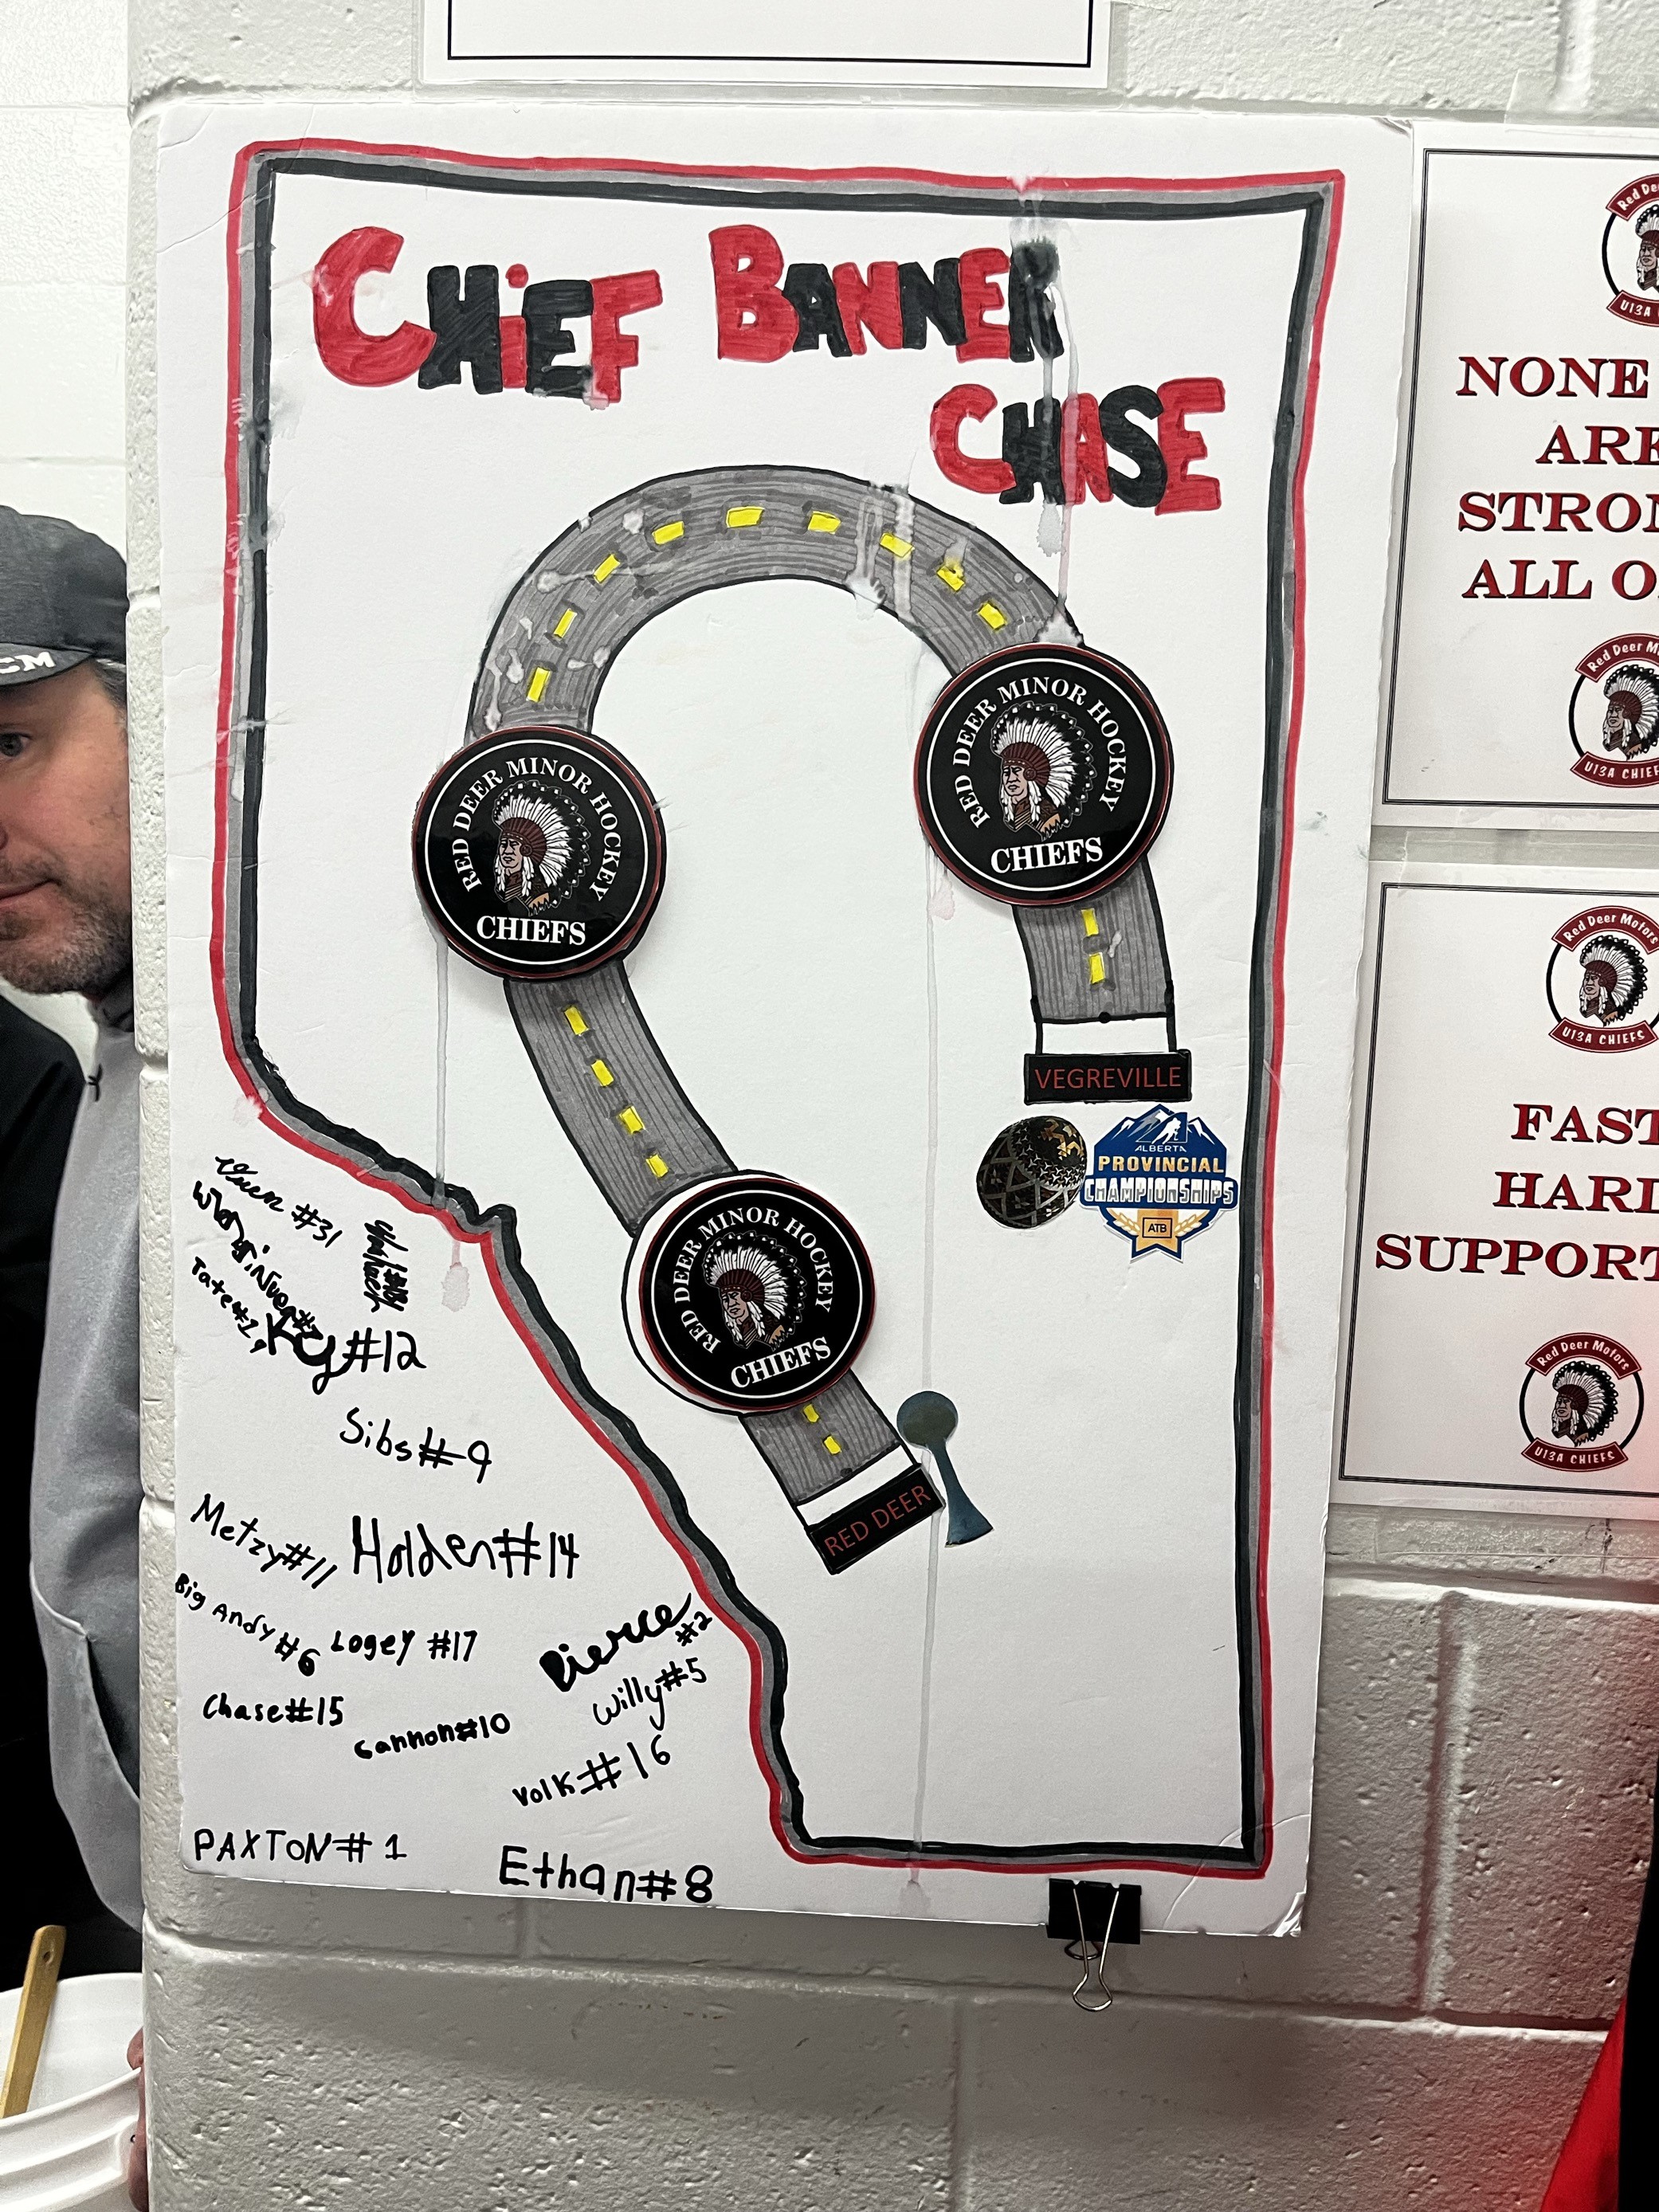 CHIEF BANNER
CHASE
RED DEER MINOR HOCKEY
CHIEFS
RED DEER MINOR HOCKEY
CHIEFS
RED DEER MINOR HOCKEY
CHIEFS
VEGREVILLE
ALBERTA
PROVINCIAL
CHAMPIONSHIPS
ATB
RED DEER
#31
Tate#
Ky#12
Sibs#9
Metzy#11
Holden#14
Big Andy#6
Logey #17
Pierce
#2
Willy#5
Chase#15
Cannon#10
Volk#16
PAXTON#1
Ethan#8
CM
Red De
U13A C
NONE
ARE
STRON
ALL O
Red Deer M
U13A CHIEF
Red Deer Motors
U13A CHIEFS
FAST
HARD
SUPPORT
Red Deer Motors
U13A CHIEFS